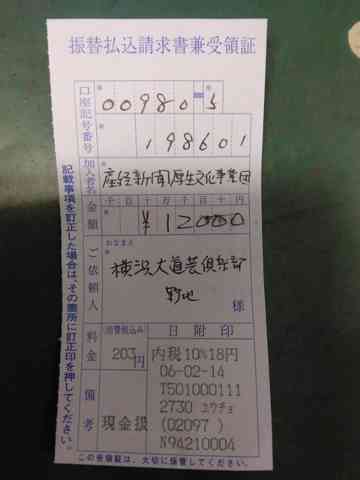 振替払込請求書兼受領証
口座記号番号
00980-5
198601
加入者名
産経新聞厚生文化事業団
金額
千 百 十 万 千 百 十 円
¥12000
ご依頼人
おなまえ
横浜大道芸倶楽部
野地
様
料金
消費税込み
203円
日附印
内税10%18円
06-02-14
T501000111
2730 ユウチョ
(02097 )
N94210004
備考
現金扱
この受領証は、大切に保管してください。
記載事項を訂正した場合は、その箇所に訂正印を押してください。